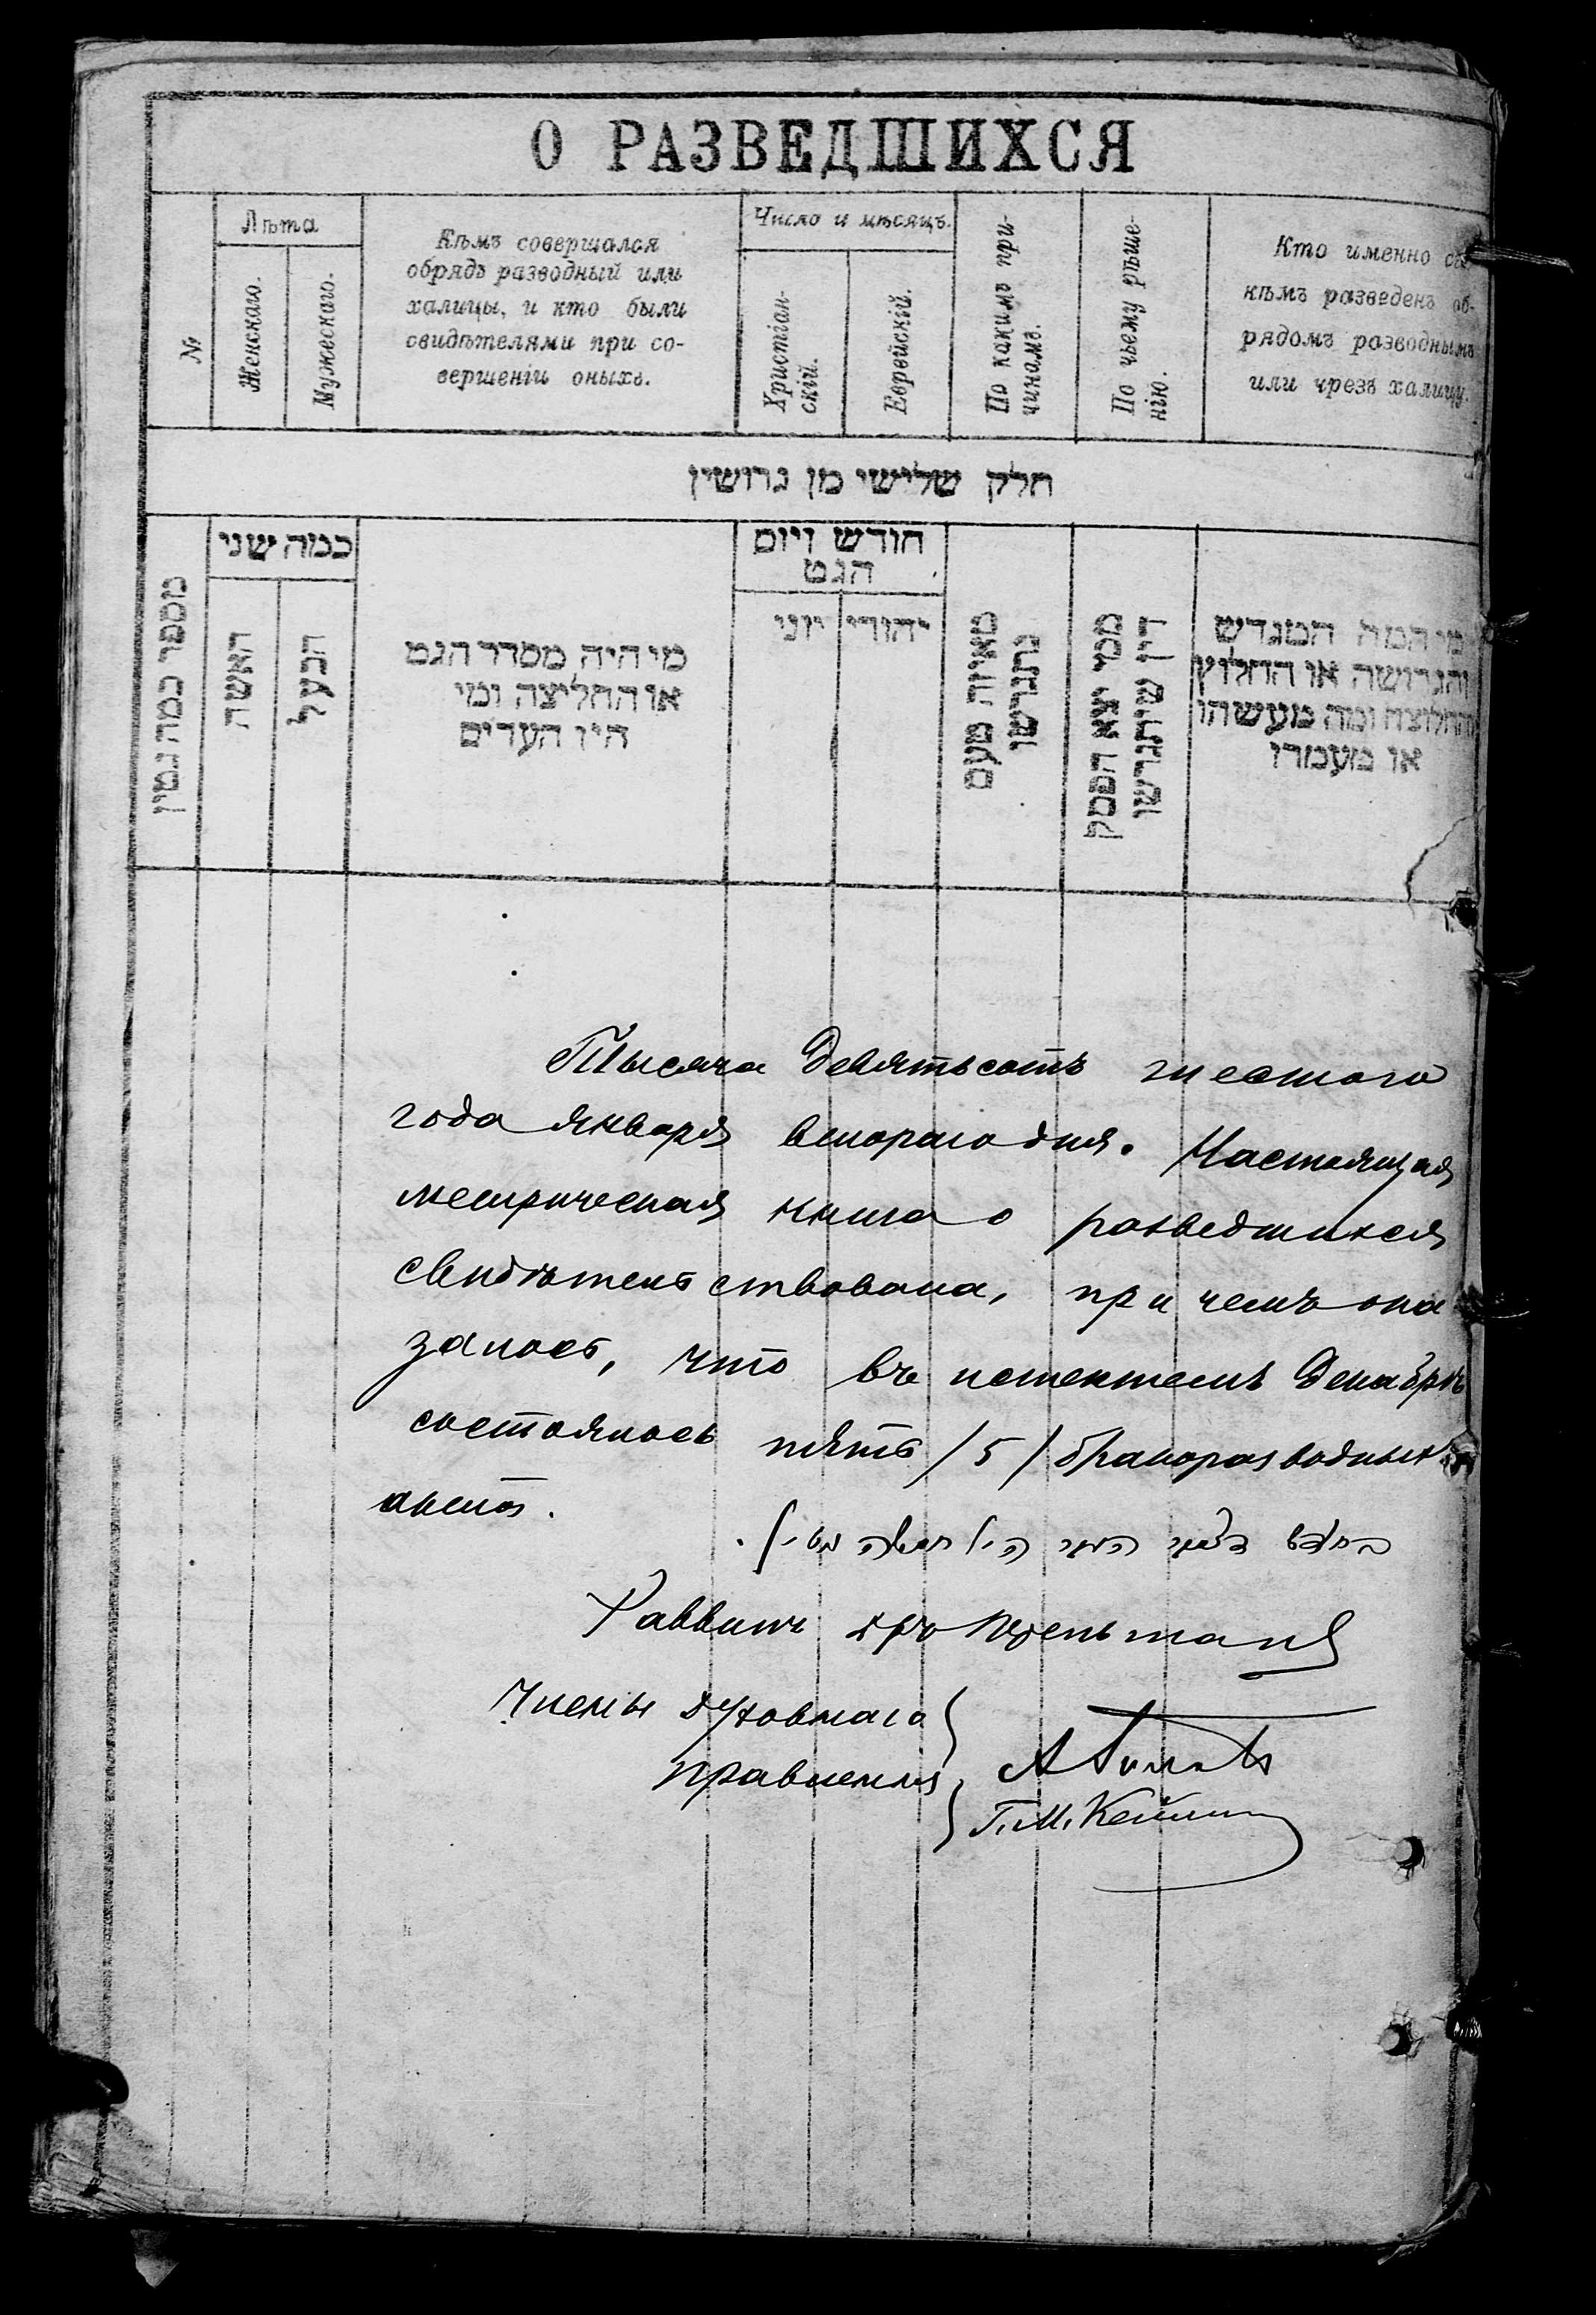 О РАЗВЕДШИХСЯ
№
Лѣта
Женскаго.
Мужескаго.
Кѣмъ совершался
обрядъ разводный или
халицы, и кто были
свидѣтелями при со-
вершеніи оныхъ.
Число и мѣсяцъ.
Христіан-
скій.
Еврейскій.
По какимъ при-
чинамъ.
По чьему рѣше-
нію.
Кто именно съ
кѣмъ разведенъ об-
рядомъ разводнымъ
или чрезъ халицу.
חלק שלישי מן גרושין
מספר כמה גטין
כמה שני
האשה
הבעל
מי היה מסדר הגט
או החליצה ומי
היו העדים
חודש ויום
הגט
יהודי
יוני
מאיזה טעם
נתגרשו
ממי יצא הפסק
דין שיתגרשו
מי המה המגרש
והגרושה או החלוץ
והחלוצה ומה מעשהו
או מעמדו
Тысяча девятьсотъ шестого
года января втораго дня. Настоящая
метрическая книга о разведшихся
свидѣтельствована, при чемъ ока
залось, что въ истекшемъ декабрѣ
состоялось пять /5/ бракоразводныхъ
актов.
Раввинъ д-ръ
Члены духовнаго
правленія
Г. М.